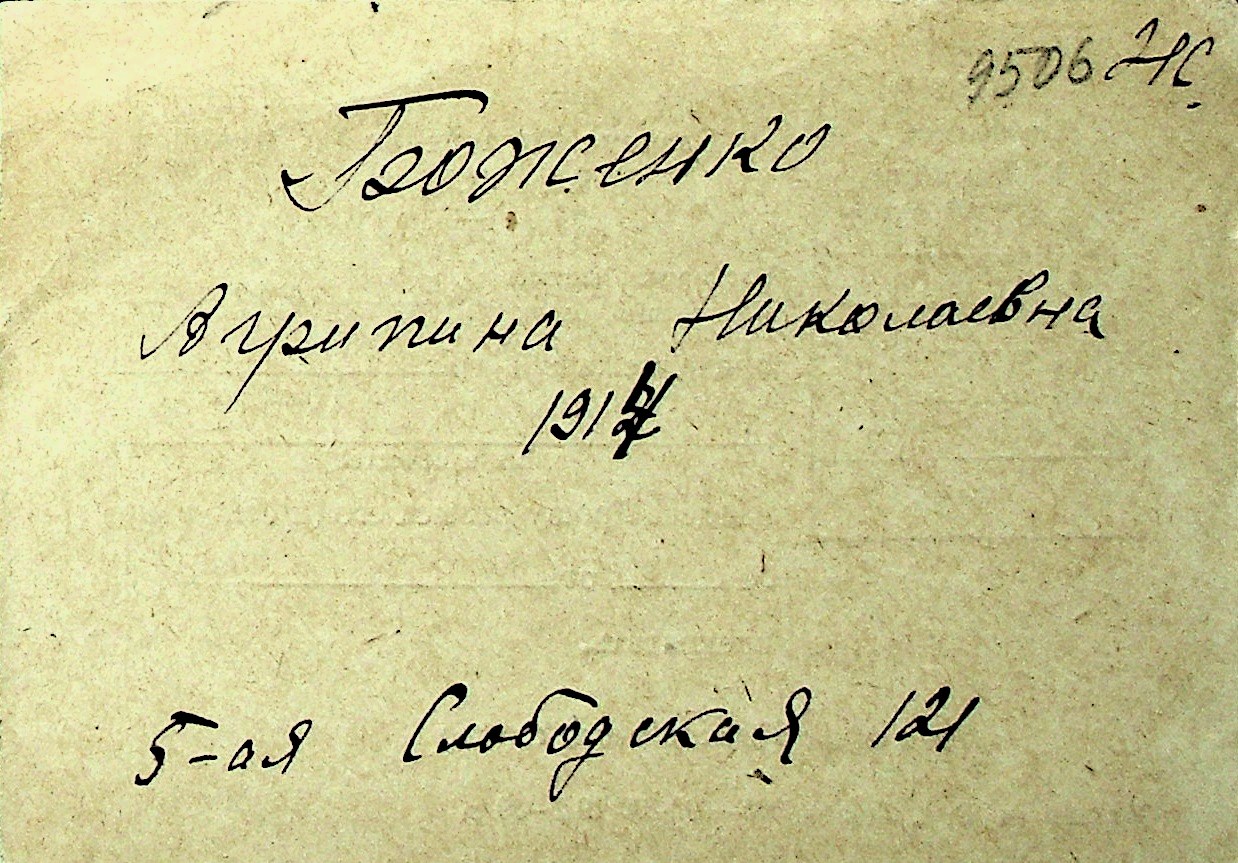 9506
Боженко
Агрипина Николаевна
5-ая Слободская 121